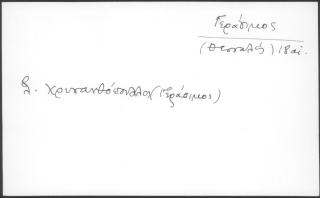 Γεράσιμος
(Θεσσαλός) 18 αι.
βλ. Χρυσανθόπουλλος (Γεράσιμος)